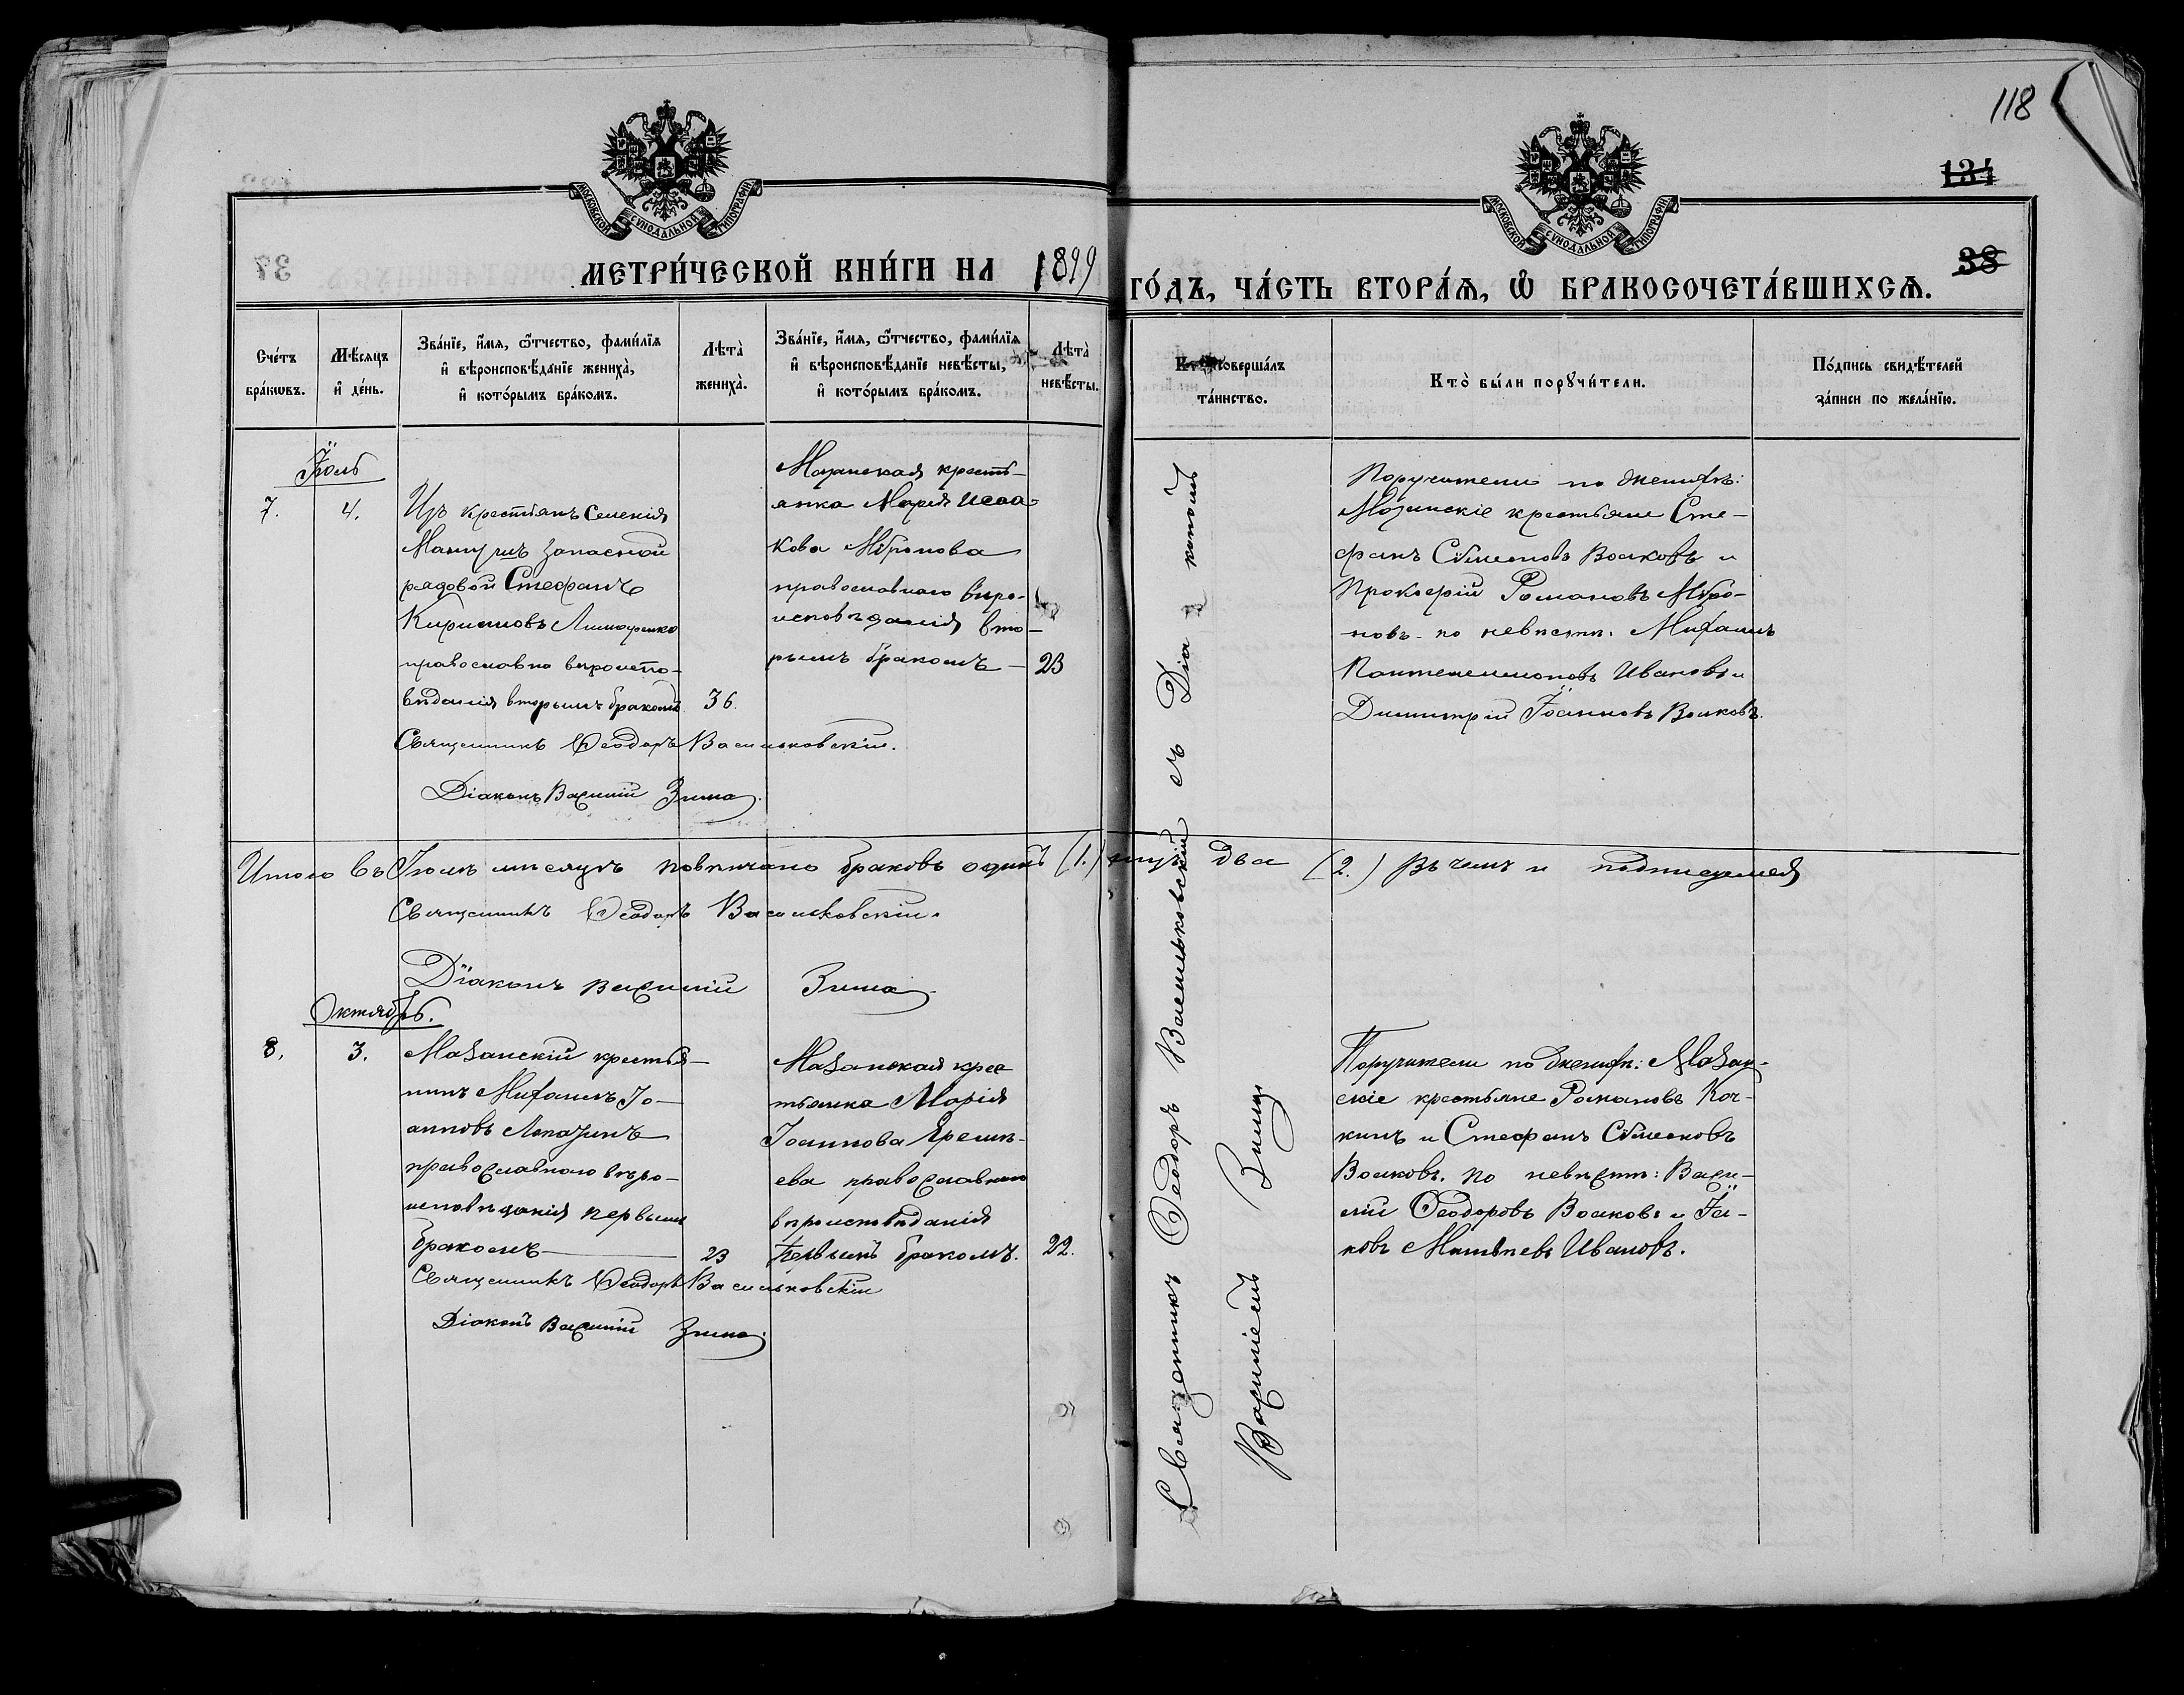 118
134
38
МОСКОВСКОЙ СѴНОДАЛЬНОЙ ТИПОГРАФІИ
МОСКОВСКОЙ СѴНОДАЛЬНОЙ ТИПОГРАФІИ
МЕТРИ́ЧЕСКОЙ КНИ́ГИ НА 1899
ГО́ДЪ, ЧА́СТЬ ВТОРА́Ѧ, Ѡ҆ БРАКОСОЧЕТА́ВШИХСѦ.
Сче́тъ бра́кѡвъ.
Мѣ́сѧцъ и҆ де́нь.
Зва́нїе, и҆́мѧ, ѻ҆́тчество, фами́лїѧ и҆ вѣроисповѣ́данїе жениха̀, и҆ кото́рымъ бра́комъ.
Лѣта̀ жениха̀.
Зва́нїе, и҆́мѧ, ѻ҆́тчество, фами́лїѧ и҆ вѣроисповѣ́данїе невѣ́сты, и҆ кото́рымъ бра́комъ.
Лѣта̀ невѣ́сты.
соверша́лъ та́инство.
Кто̀ бы́ли порꙋчи́тели.
По́дпись свидѣ́телей за́писи по жела́нїю.
Іюль
7.
4.
Изъ крестьянъ Селенія
запасной
рядовой Стефанъ
Кирилловъ
православно вѣроиспо-
вѣданія вторымъ бракомъ
36.
Мазанская кресть-
янка Марія Исаа-
кова Миронова
православнаго вѣро-
исповѣданія вто-
рымъ бракомъ —
23
Священникъ Ѳеодоръ Васильковскій.
Діаконъ Василій Зима.
Поручители по женихѣ:
Мазанскіе крестьяне Сте-
фанъ Симеоновъ Волковъ и
Прокофій Романовъ Миро-
новъ по невѣстѣ: Михаилъ
Пантелеимоновъ Ивановъ и
Димитрій Іоанновъ Волковъ.
Итого въ Іюлѣ мѣсяцѣ повѣнчано браковъ одинъ (1.) два (2.) Въ чемъ и подписуемся
Священникъ Ѳеодоръ Васильковскій.
Діаконъ Василій Зима
Октябрь.
8.
3.
Мазанскій крестья-
нинъ Михаилъ Іо-
анновъ Лопазинъ
православнаго вѣро-
исповѣданія первымъ
бракомъ —
23
Мазанская крес
тьянка Марія
Іоаннова Еремѣ-
ева православнаго
вѣроисповѣданія
первымъ бракомъ.
22.
Священникъ Ѳеодоръ Васильковскій
Діаконъ Василій Зима.
Священникъ Ѳеодоръ Васильковскій съ Діакономъ
Василіемъ Зимою
Поручители по женихѣ: Мазан-
скіе крестьяне Романовъ Коч-
кинъ и Стефанъ Симеоновъ
Волковъ. По невѣстѣ: Васи-
лій Ѳеодоровъ Волковъ и Іа-
ковъ Матвѣевъ Ивановъ.